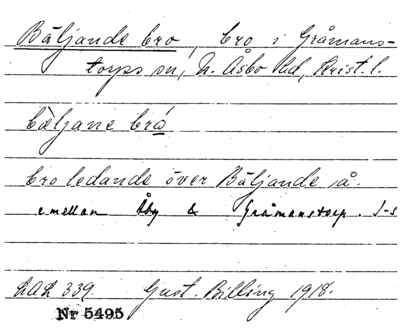 Bäljande bro, bro i Gråmans-
torps sn, N. Åsbo hd, Krist. l.
bæljane brå
bro ledande över Bäljande å.
emellan Åby & Gråmanstorp. J-s
LAL 339. Gust. Billing 1918.
Nr 5495